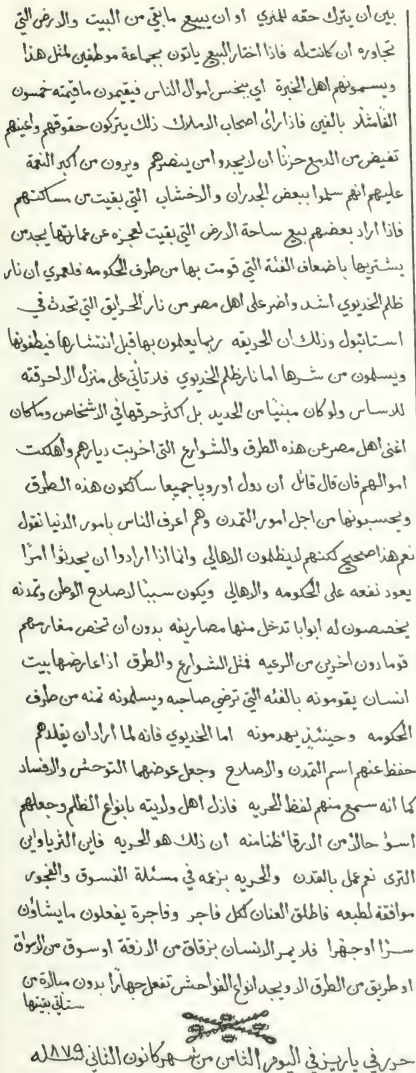 بين ان يترك حقه للمنري او ان يبيع ما بقي من البيت والارض التي
تجاوره ان كانت له فاذا اختار البيع ياتون بجماعة موظفين لمثل هذا
ويسمونهم اهل الخبرة اي يبخس اموال الناس فيقيمون ما قيمته خمسون
الفا مثلا بالفين فاذا رأى اصحاب الاملاك ذلك يتركون حقوقهم واعينهم
تفيض من الدمع حزنا ان لا يجدوا من ينصرهم ويرون من اكبر النعمة
عليهم انهم سلموا ببعض الجدران والاخشاب التي بقيت من مساكنهم
فاذا اراد بعضهم بيع ساحة الارض التي بقيت لعجزه عن عمارتها يجد من
يشتريها باضعاف الفئة التي قومت بها من طرف الحكومه فلعمري ان نار
ظلم الخديوي اشد واضر على اهل مصر من نار الحرايق التي تحدث في
استانبول وذلك ان الحريقه ربما يعلمون بها قبل انتشارها فيطفونها
ويسلمون من شرها اما نار ظلم الخديوي فلا تأتي على منزل الا حرقته
للاساس ولو كان مبنيا من الحديد بل اكثر حرقها في الاشخاص وما كان
اغنى اهل مصر عن هذه الطرق والشوارع التي اخربت ديارهم واهلكت
اموالهم فان قال قائل ان دول اوروپا جميعا سالكون هذه الطرق
ويحسبونها من اجل امور التمدن وهم اعرف الناس بامور الدنيا نقول
نعم هذا صحيح لكنهم لا يظلمون الاهالي وانما اذا ارادوا ان يحدثوا امرا
يعود نفعه على الحكومه والاهالي ويكون سببا لاصلاح الوطن وتمدنه
يخصصون له ابوابا تدخل منها مصاريفه بدون ان تخص مغارمهم
قوما دون اخرين من الرعيه فمثل الشوارع والطرق اذا عارضها بيت
انسان يقومونه بالفئه التي ترضي صاحبه ويسلمونه ثمنه من طرف
الحكومه وحينئذ يهدمونه اما الخديوي فانه لما أراد ان يقلدهم
حفظ عنهم اسم التمدن والاصلاح وجعل عوضهما التوحش والافساد
كما انه سمع منهم لفظ الحريه فاذل اهل ولايته بانواع الظلم وجعلهم
اسوأ حالا من الارقا ظنا منه ان ذلك هو الحريه فاين الثريا واين
الثرى نعم عمل بالتمدن والحريه بزعمه في مسئلة الفسوق والفجور
موافقة لطبعه فاطلق العنان لكل فاجر وفاجرة يفعلون ما يشاؤن
سرا او جهرا فلا يمر الانسان بزقاق من الازقة او سوق من الاسواق
او طريق من الطرق الا ويجد انواع الفواحش تفعل جهارا بدون مبالاة من
ستأتي بقيتها
حرر في پاريز في اليوم الثامن من شهر كانون الثاني سنه ١٨٧٩